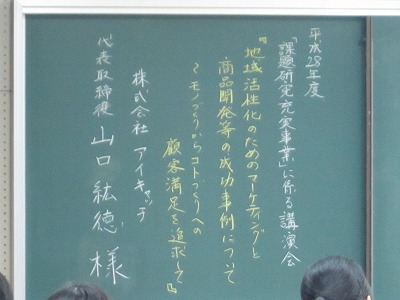 平成28年度
「課題研究充実事業」に係る講演会
『地域活性化のためのマーケティングと
商品開発等の成功事例について
～モノづくりからコトづくりへの
顧客満足を追求して』
株式会社 アイキャッチ
代表取締役 山口紘徳 様